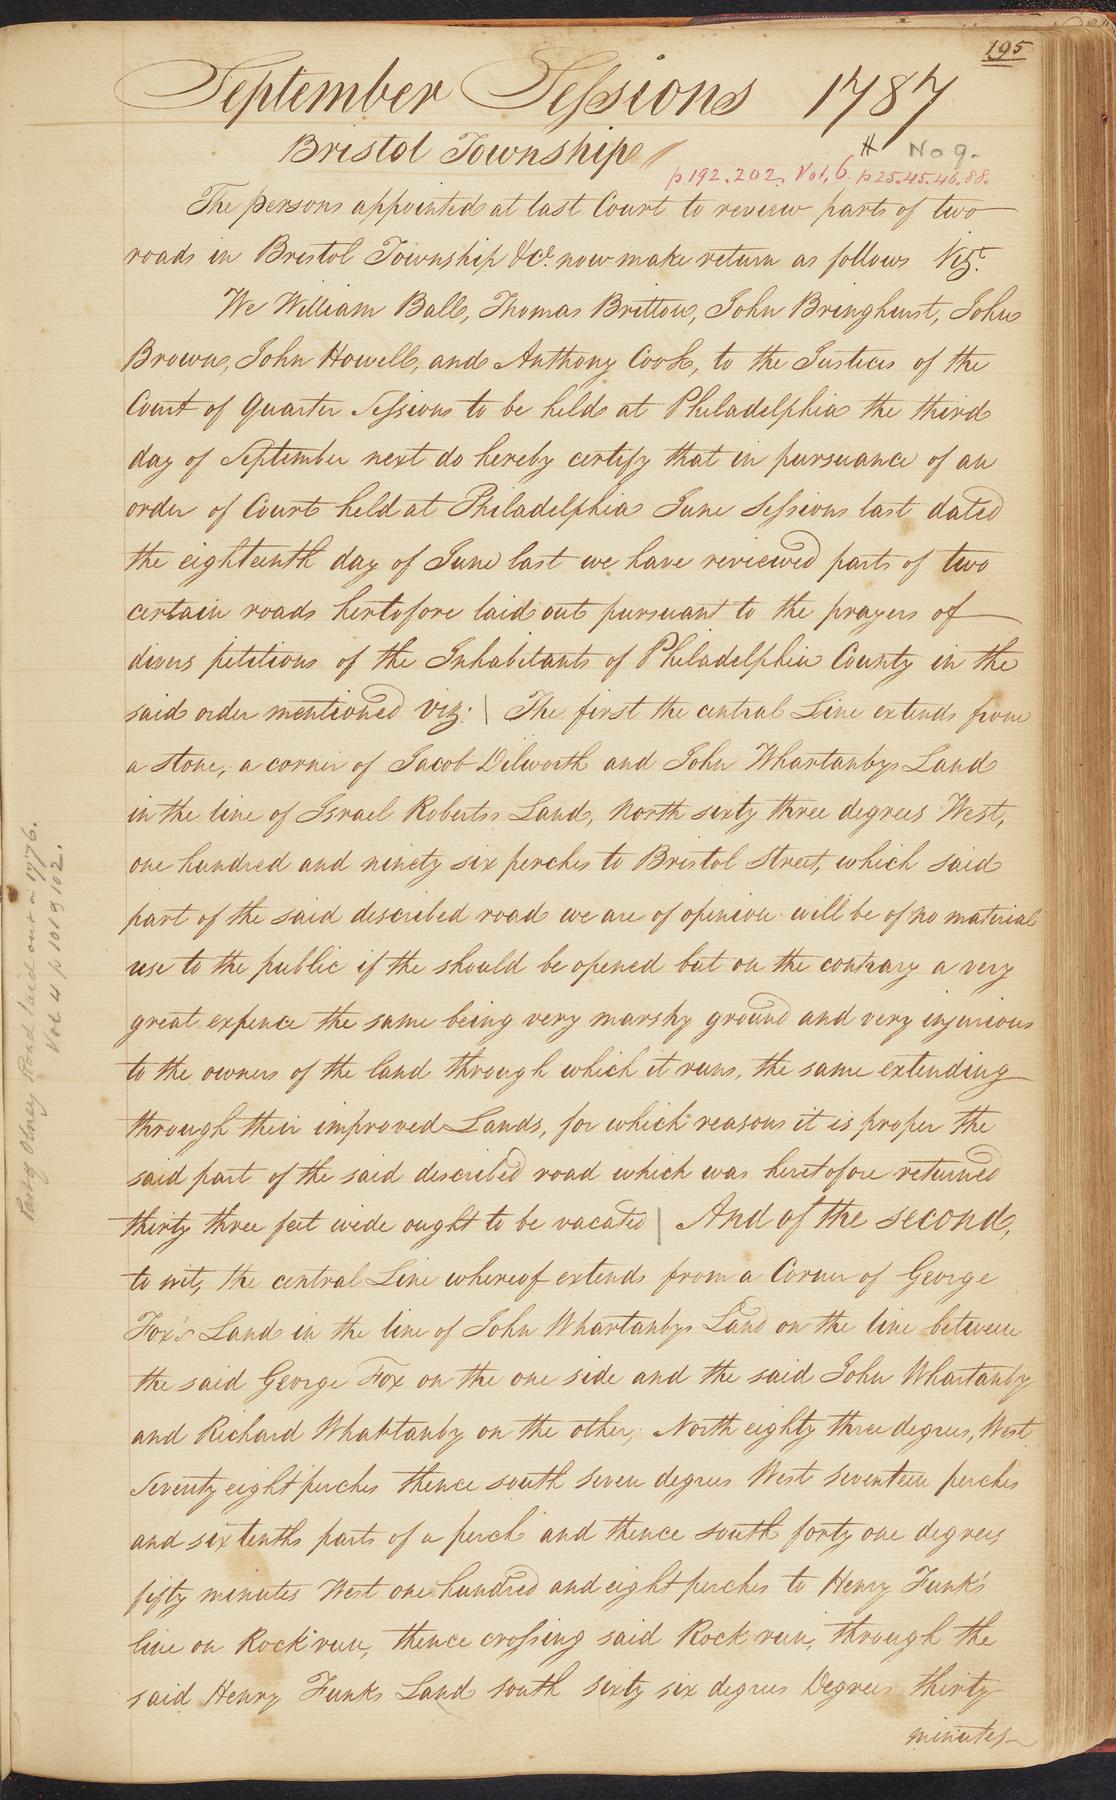 195
September Sessions 1787
Bristol Township
# No 9.
p 192. 202. Vol. 6. p 25. 45. 46. 88.
The persons appointed at last Court to review parts of two
roads in Bristol Township &c. now make return as follows Vizt.
We William Ball, Thomas Britton, John Bringhurst, John
Brown, John Howell, and Anthony Cook, to the Justices of the
Court of Quarter Sessions to be held at Philadelphia the third
day of September next do hereby certify that in pursuance of an
order of Court held at Philadelphia June Sessions last dated
the eighteenth day of June last we have reviewed parts of two
certain roads hertofore laid out pursuant to the prayers of
divers petitions of the Inhabitants of Philadelphia County in the
said order mentioned viz: | The first the central Line extends from
a stone, a corner of Jacob Dilworth and John Whartanbys Land
in the line of Israel Roberts Land, North sixty three degrees West,
one hundred and ninety six perches to Bristol Street, which said
part of the said described road we are of opinion will be of no material
use to the public if the should be opened but on the contrary a very
great expence the same being very marshy ground and very injurious
to the owners of the land through which it runs, the same extending
through their improved Lands, for which reasons it is proper the
said part of the said described road which was heretofore returned
thirty three feet wide ought to be vacated | And of the second,
to wit, the central Line whereof extends from a Corner of George
Fox's Land in the line of John Whartanbys Land on the line between
the said George Fox on the one side and the said John Whartanby
and Richard Whartanby on the other, North eighty three degrees, West
Seventy eight perches thence south seven degrees West seventeen perches
and six tenths parts of a perch and thence south forty one degrees
fifty minutes West one hundred and eight perches to Henry Funk's
line on Rock run, thence crossing said Rock run, through the
said Henry Funks Land south sixty six degrees Degrees thirty
minutes
Olney Road laid out in 1776.
Vol 4 p 101 & 102.